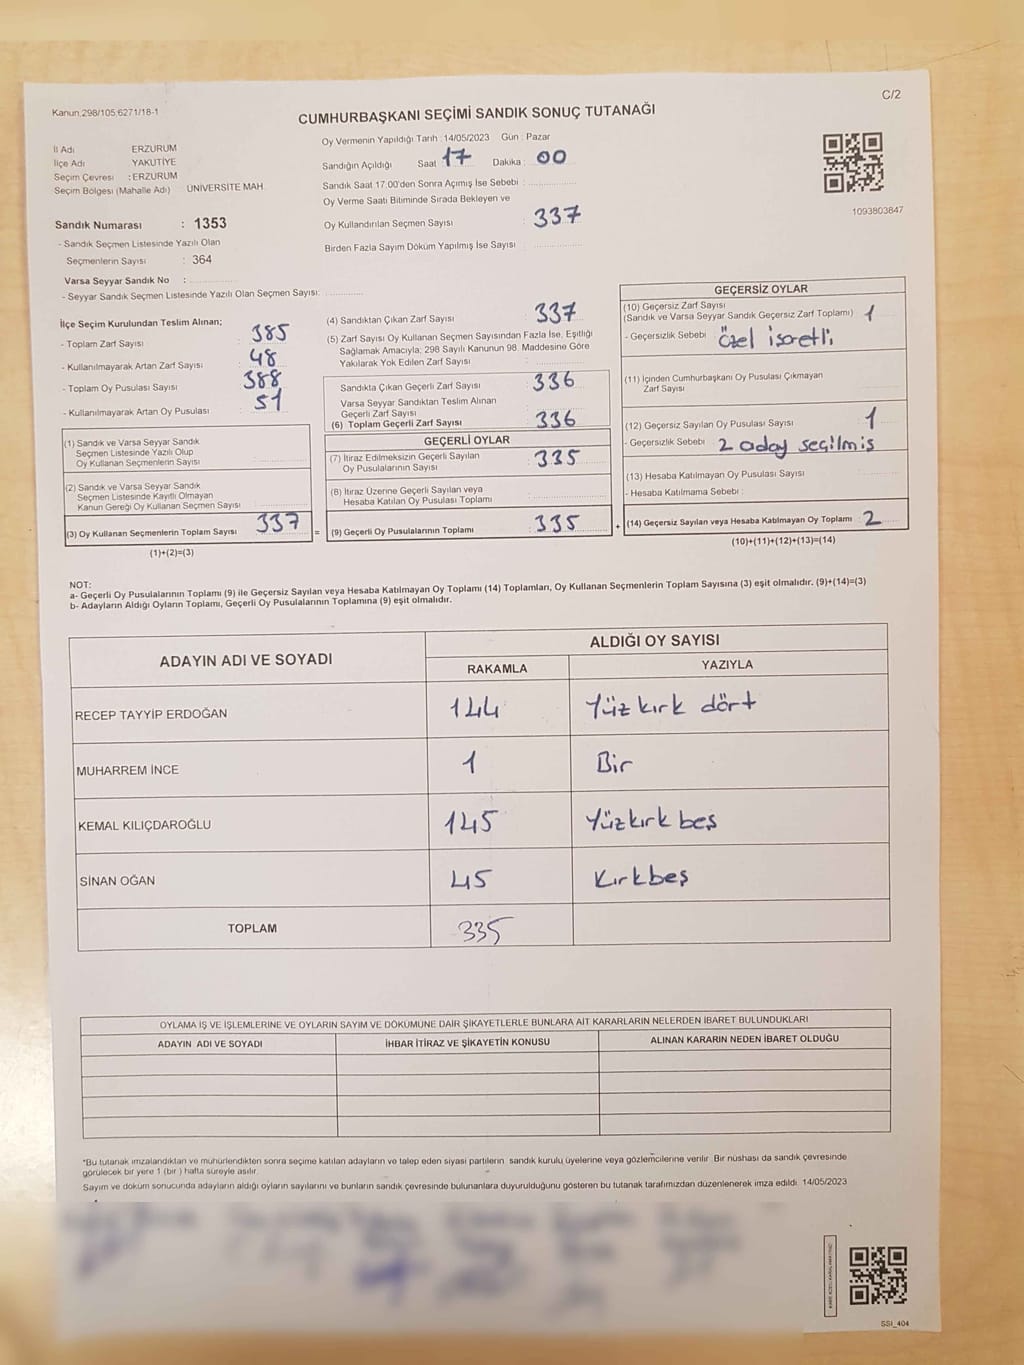 Kanun,298/105,6271/18-1
C/2
CUMHURBAŞKANI SEÇİMİ SANDIK SONUÇ TUTANAĞI
İl Adı ERZURUM
İlçe Adı YAKUTİYE
Seçim Çevresi : ERZURUM
Seçim Bölgesi (Mahalle Adı) UNIVERSİTE MAH.
Sandık Numarası : 1353
- Sandık Seçmen Listesinde Yazılı Olan
Seçmenlerin Sayısı : 364
Varsa Seyyar Sandık No :
- Seyyar Sandık Seçmen Listesinde Yazılı Olan Seçmen Sayısı:
Oy Vermenin Yapıldığı Tarih : 14/05/2023 Gün : Pazar
Sandığın Açıldığı Saat 17 Dakika : 00
Sandık Saat 17.00'den Sonra Açımış İse Sebebi :
Oy Verme Saati Bitiminde Sırada Bekleyen ve
Oy Kullandırılan Seçmen Sayısı : 337
Birden Fazla Sayım Döküm Yapılmış İse Sayısı :
1093803847
İlçe Seçim Kurulundan Teslim Alınan;
- Toplam Zarf Sayısı : 385
- Kullanılmayarak Artan Zarf Sayısı : 48
- Toplam Oy Pusulası Sayısı : 388
- Kullanılmayarak Artan Oy Pusulası : 51
(1) Sandık ve Varsa Seyyar Sandık
Seçmen Listesinde Yazılı Olup
Oy Kullanan Seçmenlerin Sayısı
(2) Sandık ve Varsa Seyyar Sandık
Seçmen Listesinde Kayıtlı Olmayan
Kanun Gereği Oy Kullanan Seçmen Sayısı
(3) Oy Kullanan Seçmenlerin Toplam Sayısı 337 =
(1)+(2)=(3)
(4) Sandıktan Çıkan Zarf Sayısı : 337
(5) Zarf Sayısı Oy Kullanan Seçmen Sayısından Fazla İse, Eşitliği
Sağlamak Amacıyla; 298 Sayılı Kanunun 98. Maddesine Göre
Yakılarak Yok Edilen Zarf Sayısı
Sandıkta Çıkan Geçerli Zarf Sayısı : 336
Varsa Seyyar Sandıktan Teslim Alınan
Geçerli Zarf Sayısı
(6) Toplam Geçerli Zarf Sayısı : 336
GEÇERLİ OYLAR
(7) İtiraz Edilmeksizin Geçerli Sayılan
Oy Pusulalarının Sayısı : 335
(8) İtiraz Üzerine Geçerli Sayılan veya
Hesaba Katılan Oy Pusulası Toplamı
(9) Geçerli Oy Pusulalarının Toplamı : 335 +
GEÇERSİZ OYLAR
(10) Geçersiz Zarf Sayısı
(Sandık ve Varsa Seyyar Sandık Geçersiz Zarf Toplamı) 1
- Geçersizlik Sebebi : Özel işaretli
(11) İçinden Cumhurbaşkanı Oy Pusulası Çıkmayan
Zarf Sayısı
(12) Geçersiz Sayılan Oy Pusulası Sayısı : 1
- Geçersizlik Sebebi : 2 aday seçilmiş
(13) Hesaba Katılmayan Oy Pusulası Sayısı
- Hesaba Katılmama Sebebi :
(14) Geçersiz Sayılan veya Hesaba Katılmayan Oy Toplamı : 2
(10)+(11)+(12)+(13)=(14)
NOT:
a- Geçerli Oy Pusulalarının Toplamı (9) ile Geçersiz Sayılan veya Hesaba Katılmayan Oy Toplamı (14) Toplamları, Oy Kullanan Seçmenlerin Toplam Sayısına (3) eşit olmalıdır. (9)+(14)=(3)
b- Adayların Aldığı Oyların Toplamı, Geçerli Oy Pusulalarının Toplamına (9) eşit olmalıdır.
ADAYIN ADI VE SOYADI
ALDIĞI OY SAYISI
RAKAMLA YAZIYLA
RECEP TAYYİP ERDOĞAN 144 Yüzkırk dört
MUHARREM İNCE 1 Bir
KEMAL KILIÇDAROĞLU 145 Yüzkırk beş
SİNAN OĞAN 45 Kırkbeş
TOPLAM 335
OYLAMA İŞ VE İŞLEMLERİNE VE OYLARIN SAYIM VE DÖKÜMÜNE DAİR ŞİKAYETLERLE BUNLARA AİT KARARLARIN NELERDEN İBARET BULUNDUKLARI
ADAYIN ADI VE SOYADI İHBAR İTİRAZ VE ŞİKAYETİN KONUSU ALINAN KARARIN NEDEN İBARET OLDUĞU
*Bu tutanak imzalandıktan ve mühürlendikten sonra seçime katılan adayların ve talep eden siyasi partilerin sandık kurulu üyelerine veya gözlemcilerine verilir. Bir nüshası da sandık çevresinde
görülecek bir yere 1 (bir ) hafta süreyle asılır.
Sayım ve döküm sonucunda adayların aldığı oyların sayılarını ve bunların sandık çevresinde bulunanlara duyurulduğunu gösteren bu tutanak tarafımızdan düzenlenerek imza edildi. 14/05/2023
SSI_404